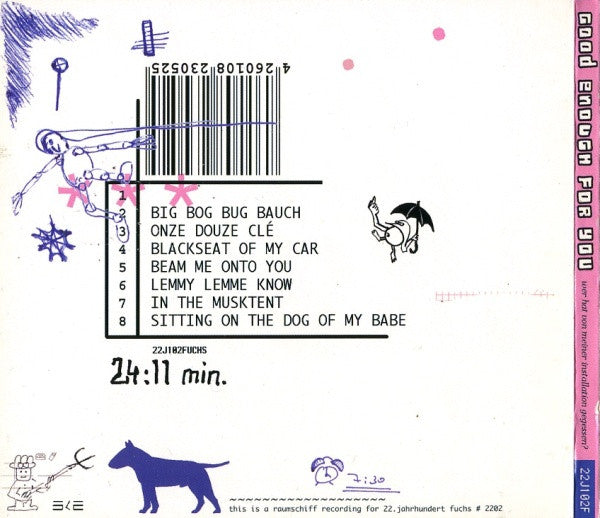 4 260108 230525
1 * * *
2 BIG BOG BUG BAUCH
3 ONZE DOUZE CLÉ
4 BLACKSEAT OF MY CAR
5 BEAM ME ONTO YOU
6 LEMMY LEMME KNOW
7 IN THE MUSKTENT
8 SITTING ON THE DOG OF MY BABE
22J102FUCHS
24:11 min.
7:30
this is a raumschiff recording for 22.jahrhundert fuchs # 2202
GOOD ENOUGH FOR YOU
wer hat von meiner installation gegessen?
22J102F